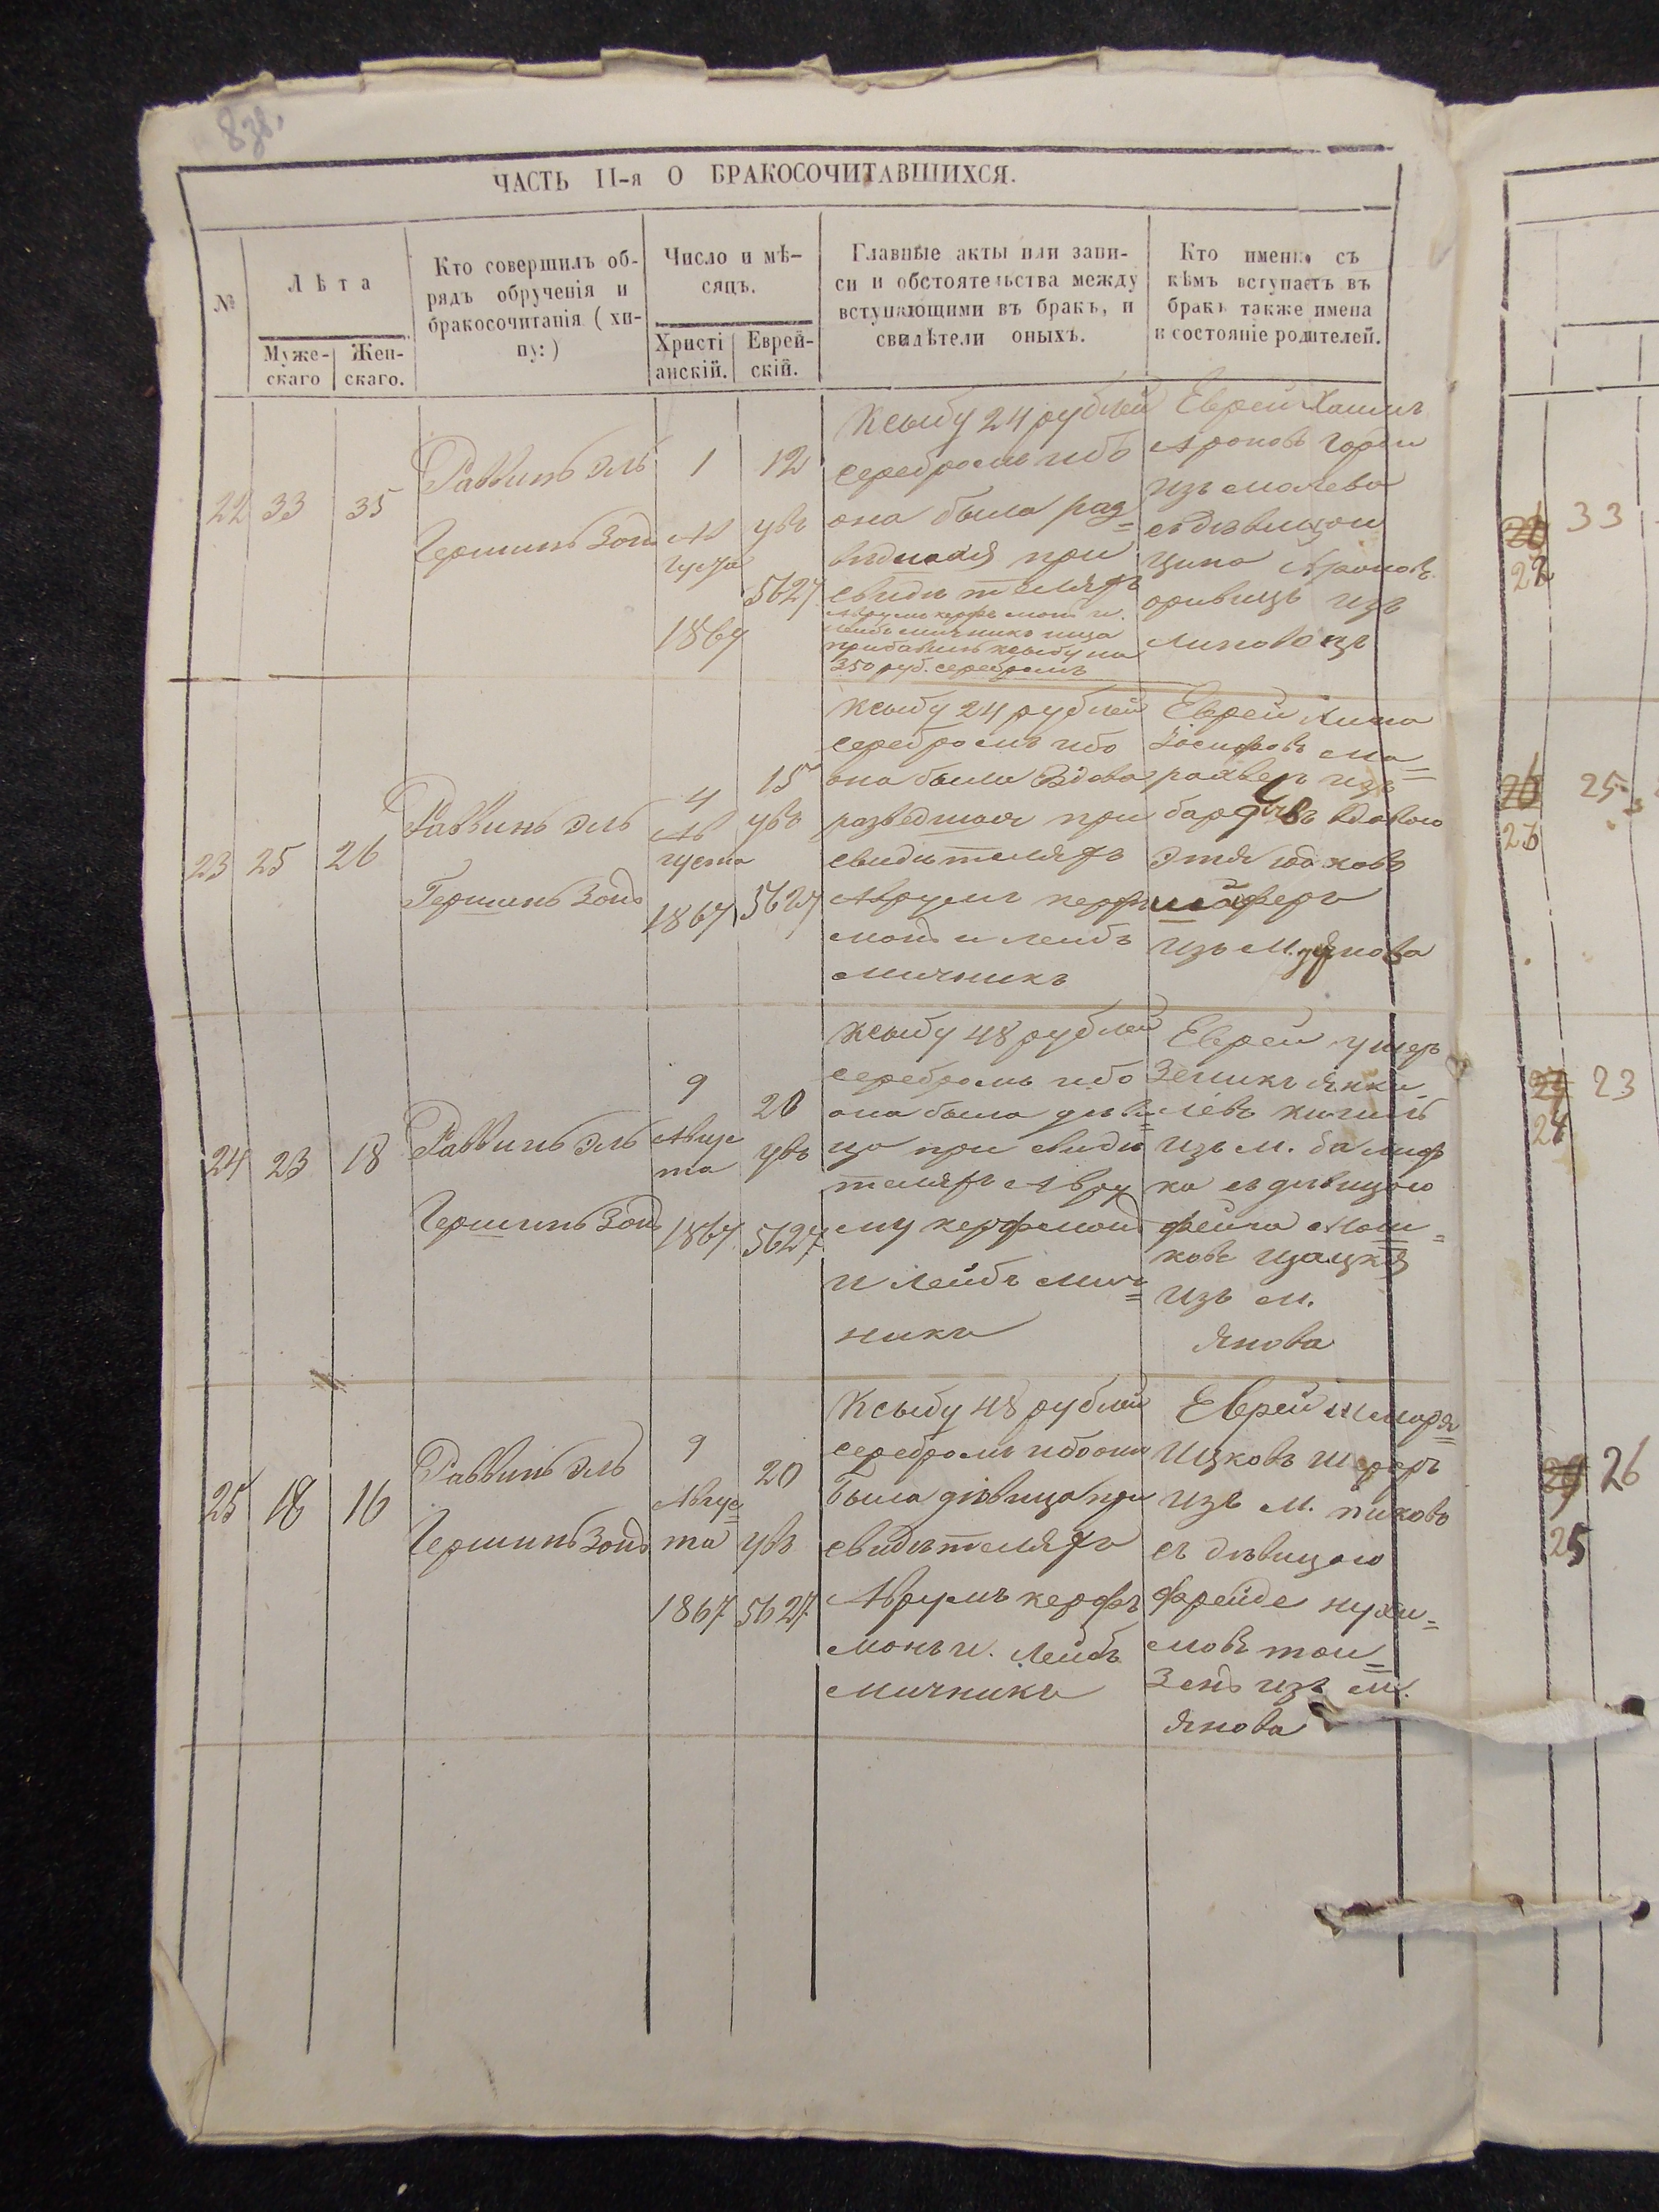 ЧАСТЬ II-я О БРАКОСОЧИТАВШИХСЯ.
№
Лѣта
Муже-
скаго
Жен-
скаго.
Кто совершилъ об-
рядъ обрученія и
бракосочитанія (хи-
пу:)
Число и мѣ-
сяцъ.
Христі
анскій.
Еврей-
скій.
Главные акты или запи-
си и обстоятельства между
вступающими въ бракъ, и
свидѣтели оныхъ.
Кто именно съ
кѣмъ вступаетъ въ
бракъ также имена
и состояніе родителей.
22 33 35
Раввинъ Эль
Гершинъ Зонд
1
Ав
густа
1867
12
увъ
5627
Ксыбу 24 рублей
серебромъ ибо
она была раз=
ведшая при
свидѣтеляхъ
Аврумъ керфъ монъ и.
Лейбъ мичникъ
прибавилъ ксыбу на
350 руб. серебромъ
Еврей Хаимъ
Ароновъ
изъ
съ дѣвицои
Ципа
изъ
Липовецъ
23 25 26
Раввинъ Эль
Гершинъ Зонд
4
Ав
густа
1867
15
увъ
5627
Ксыбу 24 рублей
серебромъ ибо
она была Вдова
разведшая при
свидѣтеляхъ
Аврумъ керфъ
монъ и лейбъ
мичникъ
Еврей
Іосифовъ
изъ
вдовою
Этя
изъ М. Янова
24 23 18
Раввинъ Эль
Гершинъ Зонд
9
Авгус
та
1867
20
увъ
5627
Ксыбу 48 рублей
серебромъ ибо
она была дѣви=
ца при свидѣ
теляхъ Авру
му керфмонъ
и лейбъ мич=
ника
Еврей ушеръ
Зеликъ Янки
левъ
изъ м.
ка съ дѣвицою
фейга Мош=
ковъ
изъ м.
Янова
25 18 16
Раввинъ Эль
Гершинъ Зонд
9
Авгус=
та
1867
20
увъ
5627
Ксыбу 48 рублей
серебромъ ибо она
была дѣвица при
свидѣтеляхъ
Аврумъ керфъ
монъ и. Лейбъ
мичника
Еврей Шмаря=
Ицковъ
изъ м. пиковъ
съ дѣвицою
Фрейде нухи=
мовъ той=
Зенъ изъ м.
Янова
33
22
25
23
23
24
26
25